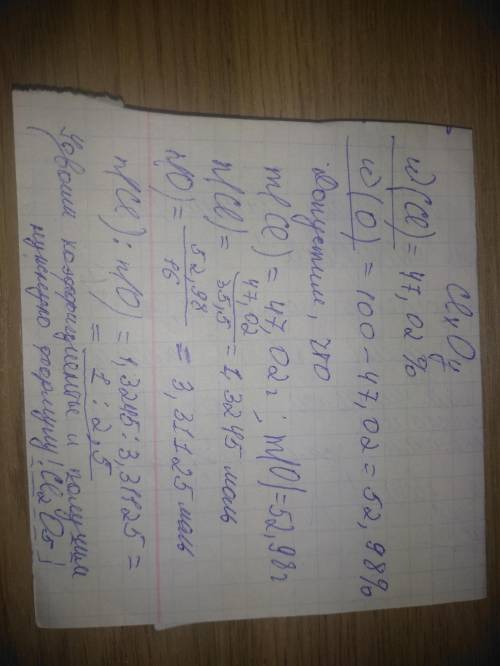 ClxOy
w(Cl) = 47,02%
w(O) = 100 - 47,02 = 52,98%
Допустим, что
m(Cl) = 47,02г; m(O) = 52,98г
n(Cl) = 47,02/35,5 = 1,3245 моль
n(O) = 52,98/16 = 3,31125 моль
n(Cl) : n(O) = 1,3245 : 3,31125 =
= 1 : 2,5
Удвоим коэффициенты и получим
нужную формулу: Cl2O5